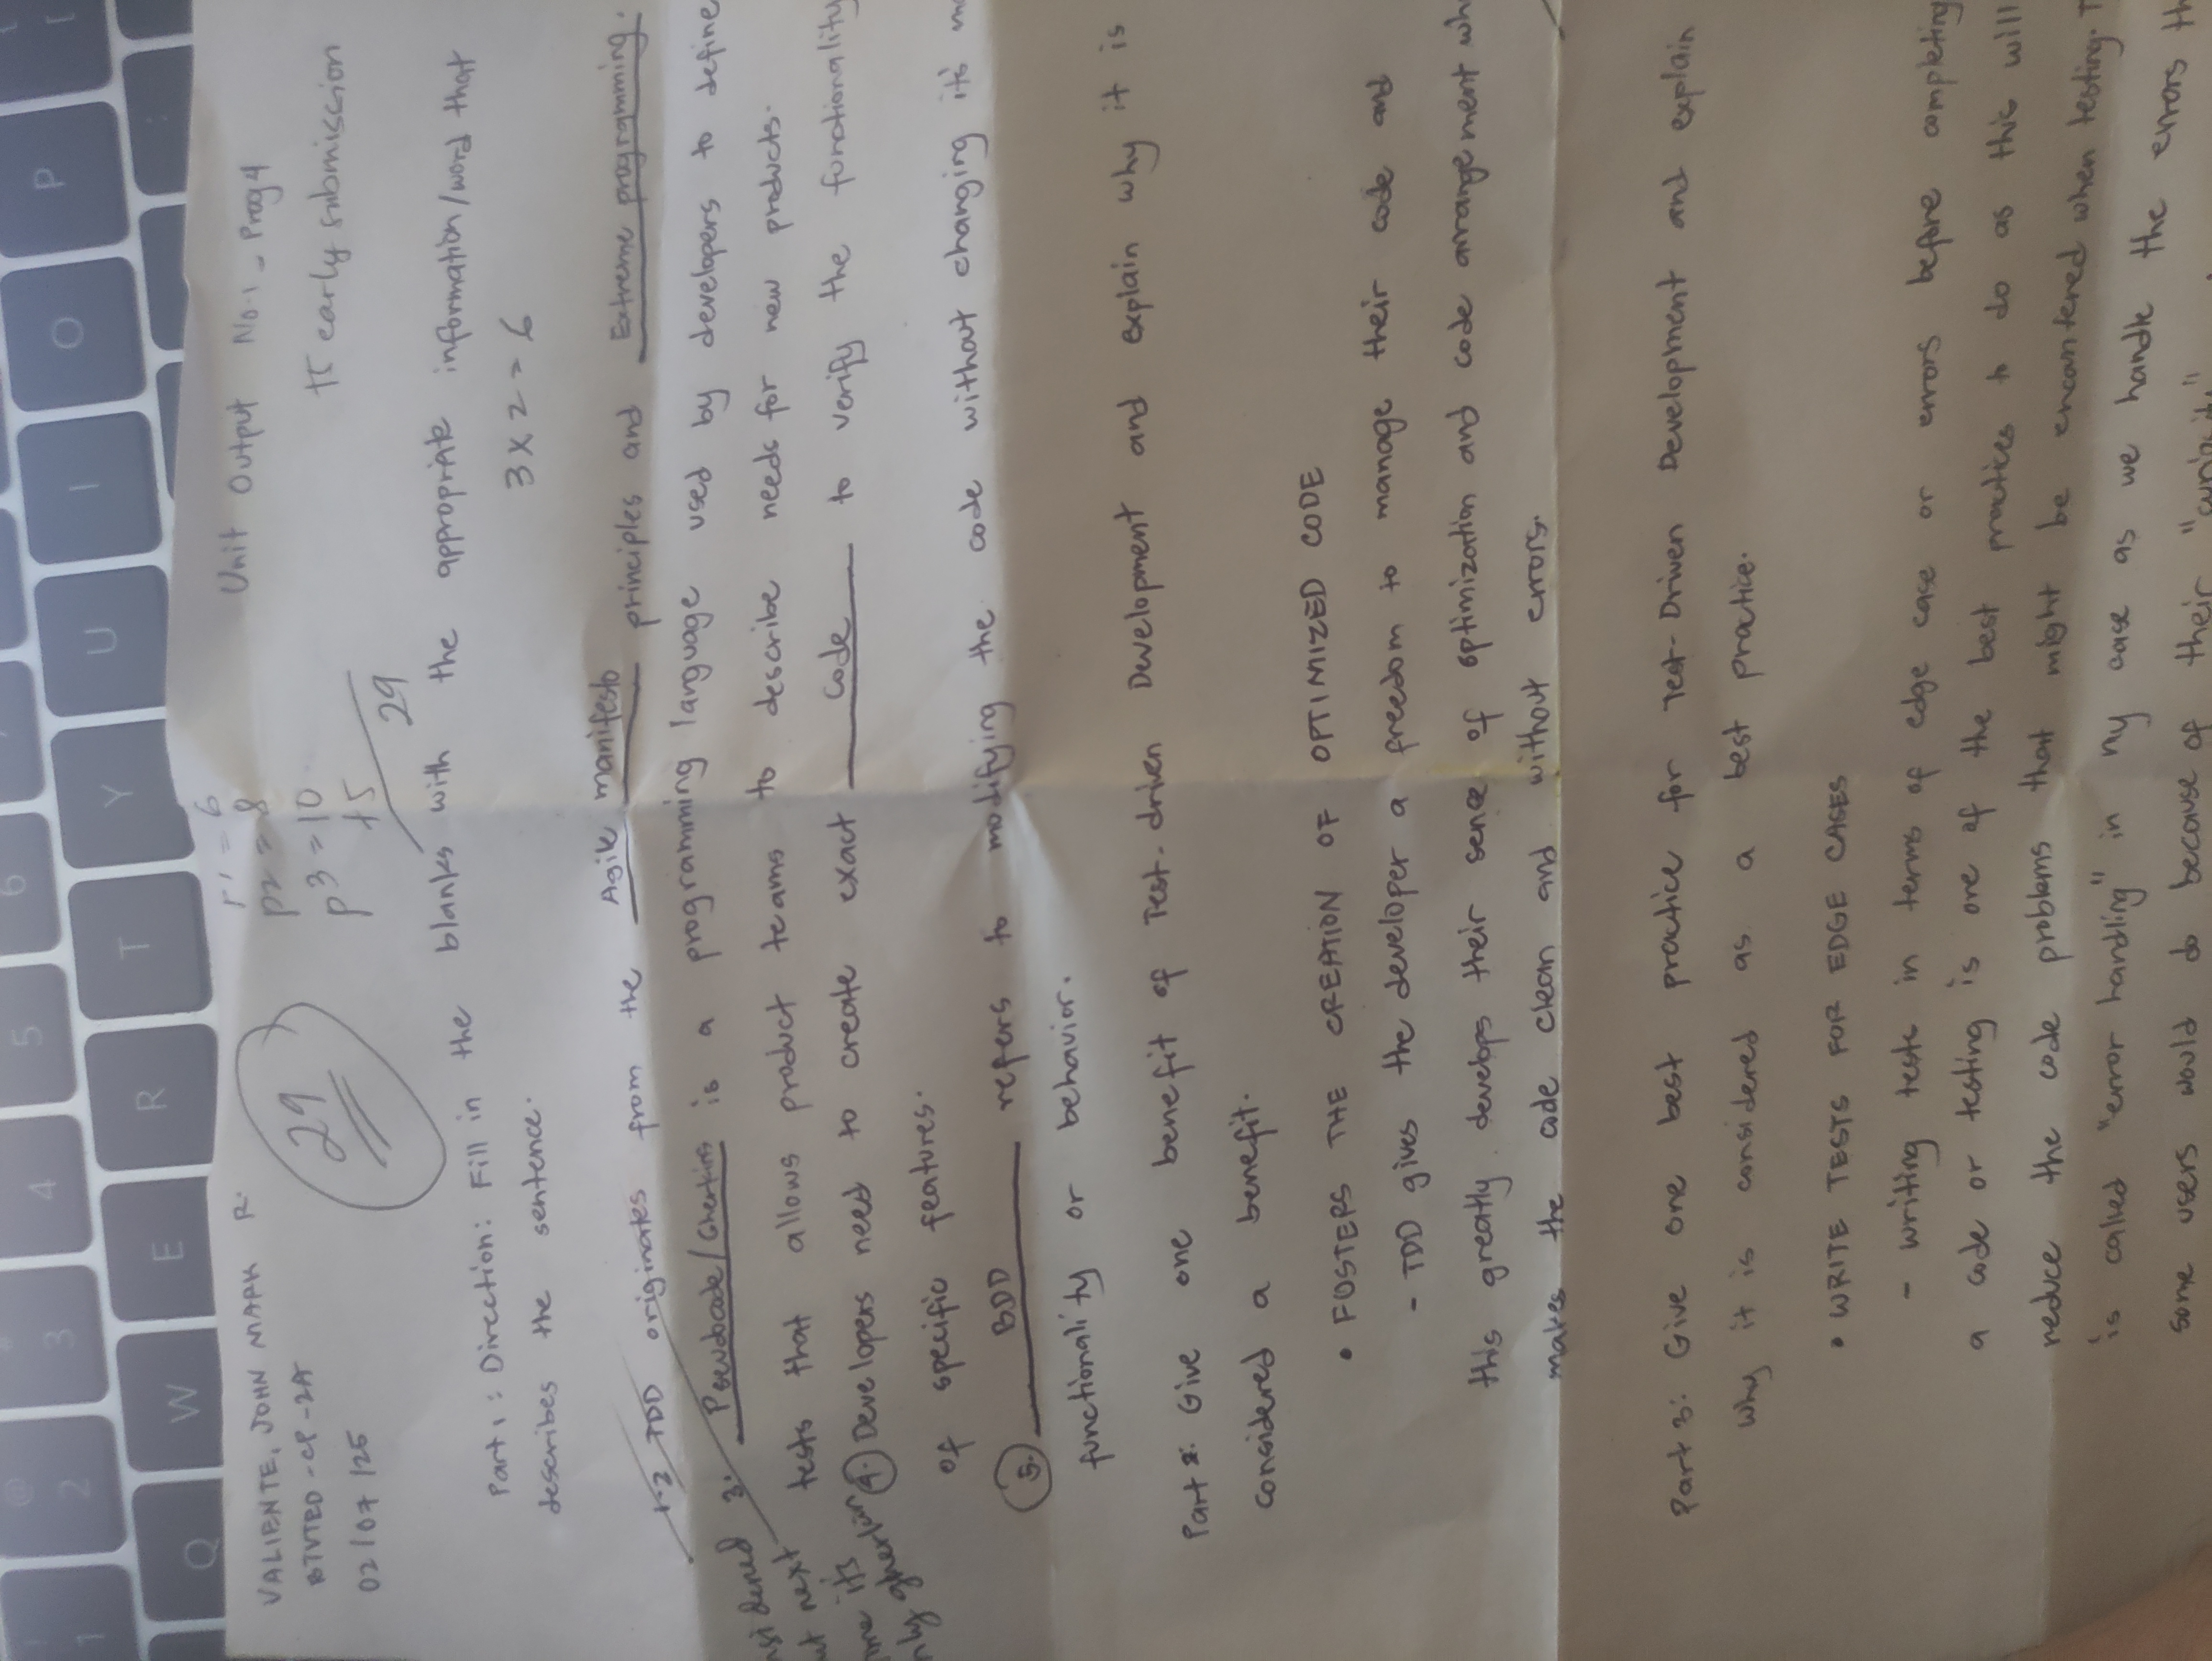 1 @ 2 # 3 4 5 6
Q W E R T Y U I O P [
VALIENTE, JOHN MARK R.
BTVTED - CP - 2A
02/07/25
29
p1 = 6
p2 = 8
p3 = 10
+5
29
Unit Output No.1 - Prog 4
+5 early submission
Part 1 : Direction: Fill in the blanks with the appropriate information/word that
describes the sentence.
3 x 2 = 6
1-2 TDD originates from the Agile manifesto principles and Extreme programming.
3. Pseudocode/Gherkins is a programming language used by developers to define
tests that allows product teams to describe needs for new products.
nsidered
ut next
me it's
nly gherkin
4. Developers need to create exact code to verify the functionality
of specific features.
5. BDD refers to modifying the code without changing it's
functionality or behavior.
Part 2: Give one benefit of Test-driven Development and explain why it is
considered a benefit.
• FOSTERS THE CREATION OF OPTIMIZED CODE
- TDD gives the developer a freedom to manage their code and
this greatly develops their sense of optimization and code arrangement wh
makes the code clean and without errors.
Part 3: Give one best practice for Test-Driven Development and explain
why it is considered as a best practice.
• WRITE TESTS FOR EDGE CASES
- writing tests in terms of edge case or errors before completing
a code or testing is one of the best practices to do as this will
reduce the code problems that might be encountered when testing. T
is called "error handling" in my case as we handle the errors th
some users would do because of their "curiosity"